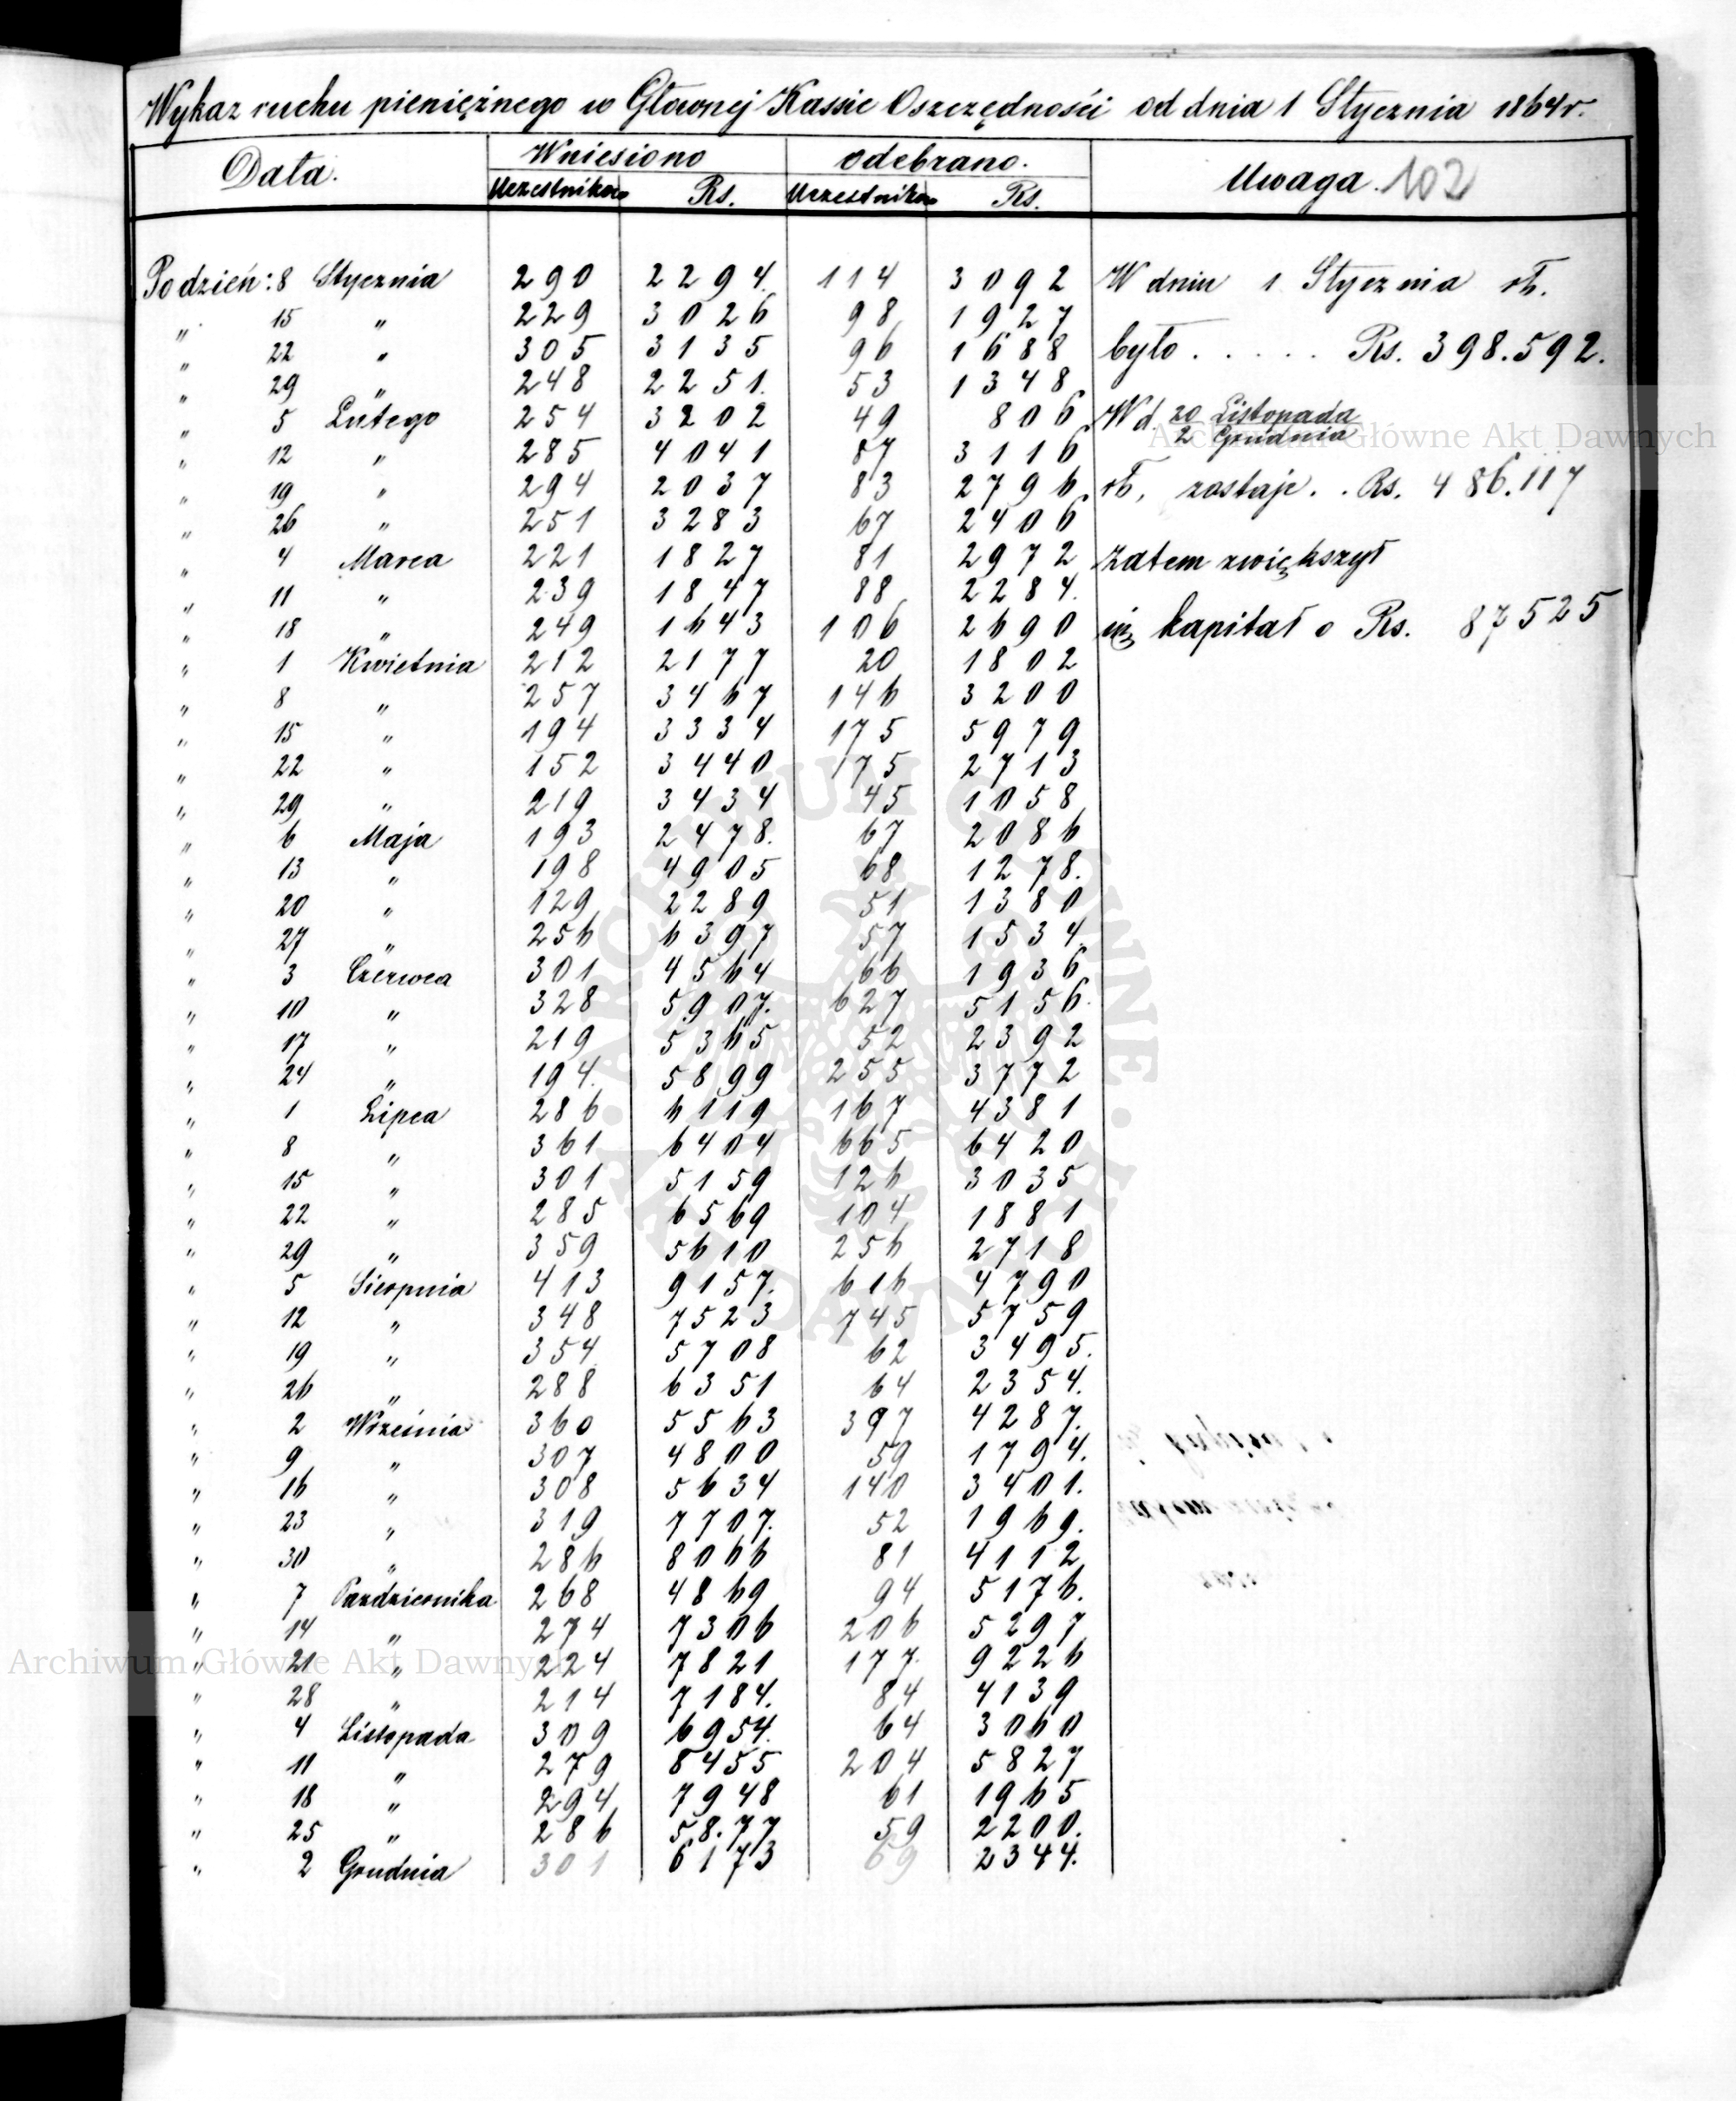 Wykaz ruchu pieniężnego w Głównej Kassie Oszczędności od dnia 1 Stycznia 1864 r.
Data. Wniesiono odebrano. Uwaga. 102
Uczestników Rs. Uczestników Rs.
Po dzień: 8 Stycznia 290 2294. 114 3092 W dniu 1 Stycznia rb.
„ 15 „ 229 3026 98 1927
„ 22 „ 305 3135 96 1688 było . . . . . Rs. 398.592.
„ 29 „ 248 2251. 53 1348
„ 5 Lutego 254 3202 49 806 W d. 20 Listopada
2 Grudnia
„ 12 „ 285 4041 87 3116
„ 19 „ 294 2037 83 2796 rb, zostaje . . Rs. 486.117
„ 26 „ 251 3283 67 2406
„ 4 Marca 221 1827 81 2972 zatem zwiększył
„ 11 „ 239 1847 88 2284.
„ 18 „ 249 1643 106 2690 się kapitał o Rs. 87525
„ 1 Kwietnia 212 2177 20 1802
„ 8 „ 257 3467 146 3200
„ 15 „ 194 3334 175 5979
„ 22 „ 152 3440 175 2713
„ 29 „ 219 3434 45 1058
„ 6 Maja 193 2478. 67 2086
„ 13 „ 198 4905 68 1278.
„ 20 „ 129 2289 51 1380
„ 27 „ 256 6397 57 1534
„ 3 Czerwca 301 4564 66 1936
„ 10 „ 328 5907. 627 5156.
„ 17 „ 219 5365 52 2392
„ 24 „ 194. 5899 255 3772
„ 1 Lipca 286 6119 167 4381
„ 8 „ 361 6404 665 6420
„ 15 „ 301 5159 126 3035
„ 22 „ 285 6569 104 1881
„ 29 „ 359 5610 256 2718
„ 5 Sierpnia 413 9157. 616 4790
„ 12 „ 348 7523 745 5759
„ 19 „ 354 5708 62 3495.
„ 26 „ 288 6351 64 2354.
„ 2 Września 360 5563 397 4287.
„ 9 „ 307 4800 59 1794.
„ 16 „ 308 5634 140 3401.
„ 23 „ 319 7707. 52 1969.
„ 30 „ 286 8066 81 4112
„ 7 Pazdziernika 268 4869 94 5176.
„ 14 „ 274 7306 206 5297
„ 21 „ 224 7821 177. 9226
„ 28 „ 214 7184. 84 4139
„ 4 Listopada 309 6954. 64 3060
„ 11 „ 279 8455 204 5827
„ 18 „ 294 7948 61 1965
„ 25 „ 286 58.77 59 2200.
„ 2 Grudnia 301 6173 69 2344.
Archiwum Główne Akt Dawnych
Archiwum Główne Akt Dawnych
ARCHIWUM GŁÓWNE AKT DAWNYCH